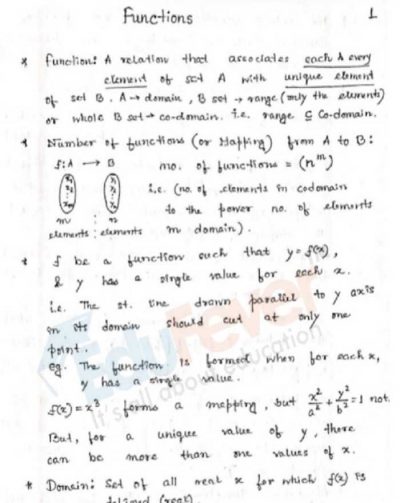 Functions 1
* Function: A relation that associates each & every
element of set A with unique element
of set B. A → domain, B set → range (only the elements)
or whole B set → co-domain. i.e. range ⊆ Co-domain.
* Number of functions (or Mapping) from A to B:
f: A → B no. of functions = (n^m)
x₁ x₂ ⋮ xₘ 1 2 ⋮ n i.e. (no. of elements in codomain
m : n to the power no. of elements
elements : elements in domain).
* f be a function such that y = f(x),
& y has a single value for each x.
i.e. The st. line drawn parallel to y axis
in its domain should cut at only one
point.
eg. The function is formed when for each x,
y has a single value.
f(x) = x³ forms a mapping, but x²/a² + y²/b² = 1 not.
But, for a unique value of y, there
can be more than one values of x.
* Domain: Set of all real x for which f(x) is
defined (real)
EduFever
It's all about education